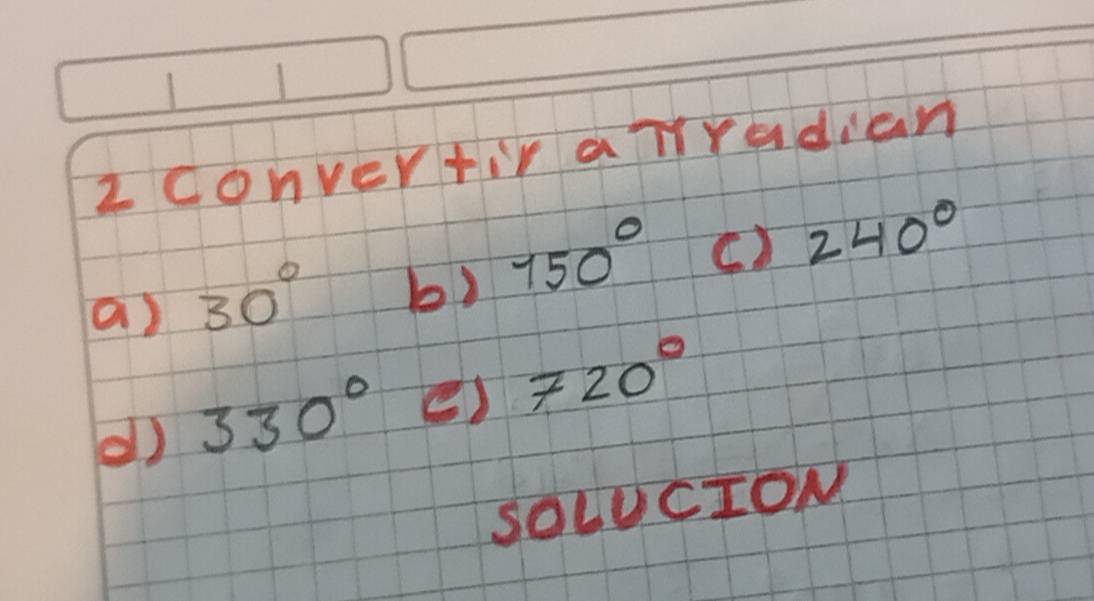 2 Convertir a πradian
a) 30° b) 150° c) 240°
d) 330° e) 720°
SOLUCION